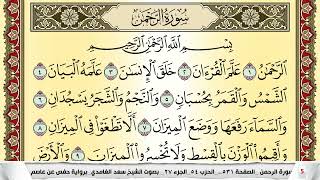 سُورَةُ الرَّحْمَٰن
بِسْمِ اللَّهِ الرَّحْمَٰنِ الرَّحِيمِ
الرَّحْمَٰنُ ١ عَلَّمَ الْقُرْءَانَ ٢ خَلَقَ الْإِنسَٰنَ ٣ عَلَّمَهُ الْبَيَانَ ٤
الشَّمْسُ وَالْقَمَرُ بِحُسْبَانٍ ٥ وَالنَّجْمُ وَالشَّجَرُ يَسْجُدَانِ ٦
وَالسَّمَاءَ رَفَعَهَا وَوَضَعَ الْمِيزَانَ ٧ أَلَّا تَطْغَوْا فِي الْمِيزَانِ ٨
وَأَقِيمُوا الْوَزْنَ بِالْقِسْطِ وَلَا تُخْسِرُوا الْمِيزَانَ ٩
سورة الرحمن الصفحة ٥٣١ .. الحزب ٥٤ الجزء ٢٧ .. بصوت الشيخ سعد الغامدي برواية حفص عن عاصم